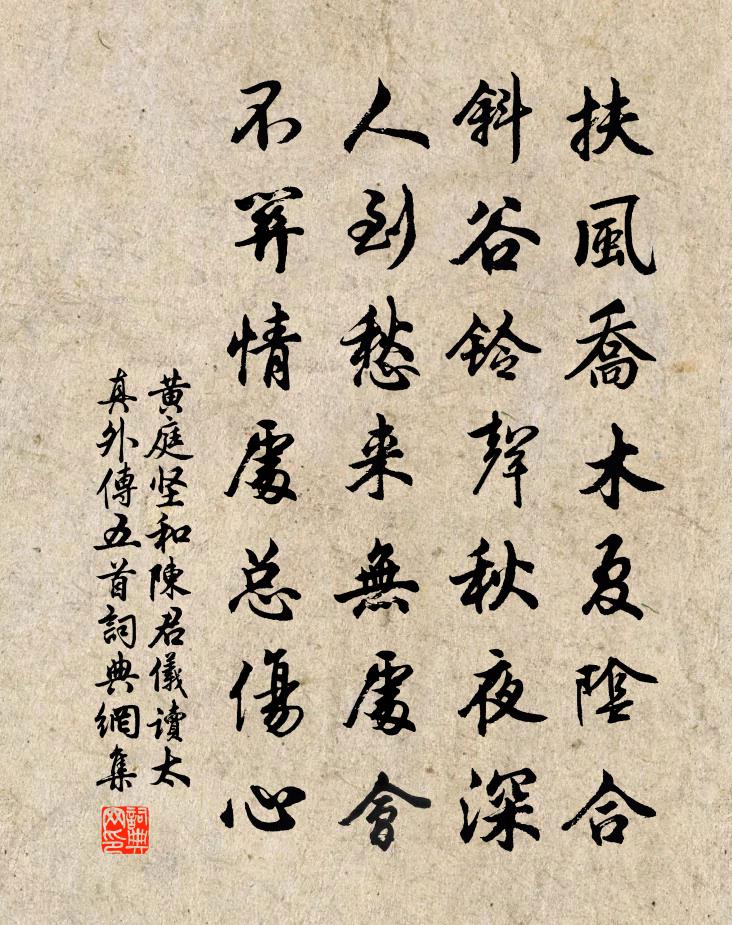 扶風喬木夏陰合
斜谷鈴聲秋夜深
人到愁来無處會
不關情處总傷心
黄庭坚和陳君儀讀太
真外傳五首詞典網集
詞典
网印